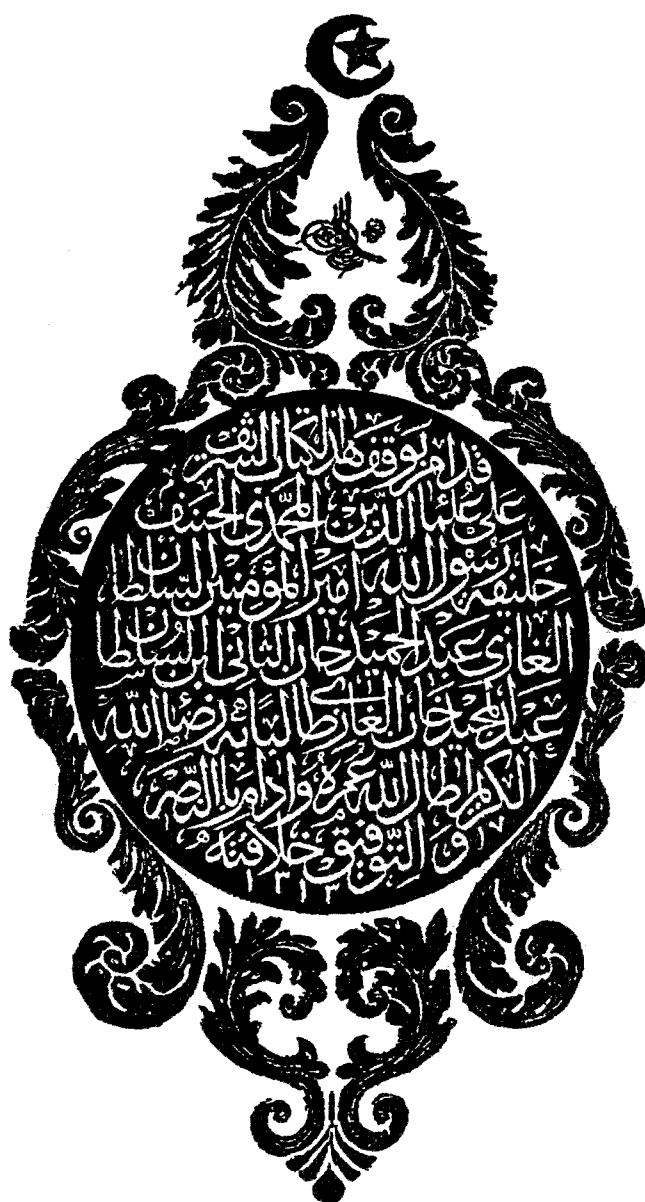 قد امر بوقف هذا الكتاب الشريف
على علماء الدين المحمدى الحنيف
خليفة رسول الله امير المؤمنين السلطان
الغازى عبد الحميد خان الثانى ابن السلطان
عبد المجيد خان الغازى طالبا به رضاء الله
الكريم اطال الله عمره وادام بالنصر
والتوفيق خلافته
١٣١٣